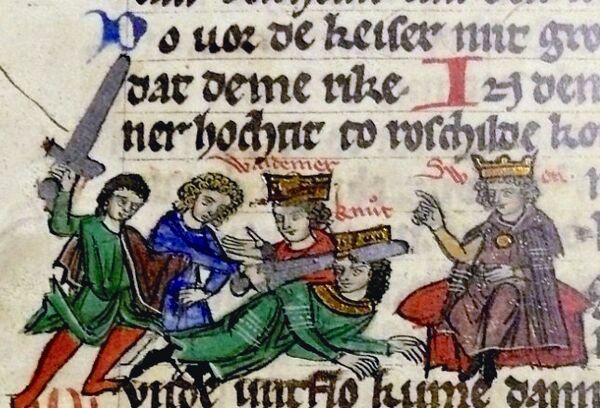 Do uor de keiser mit gro
dat deme rike. In den
ner hochtit to roschilde ko
Waldemer
Knut
Sw en
vnde untflo kume dann